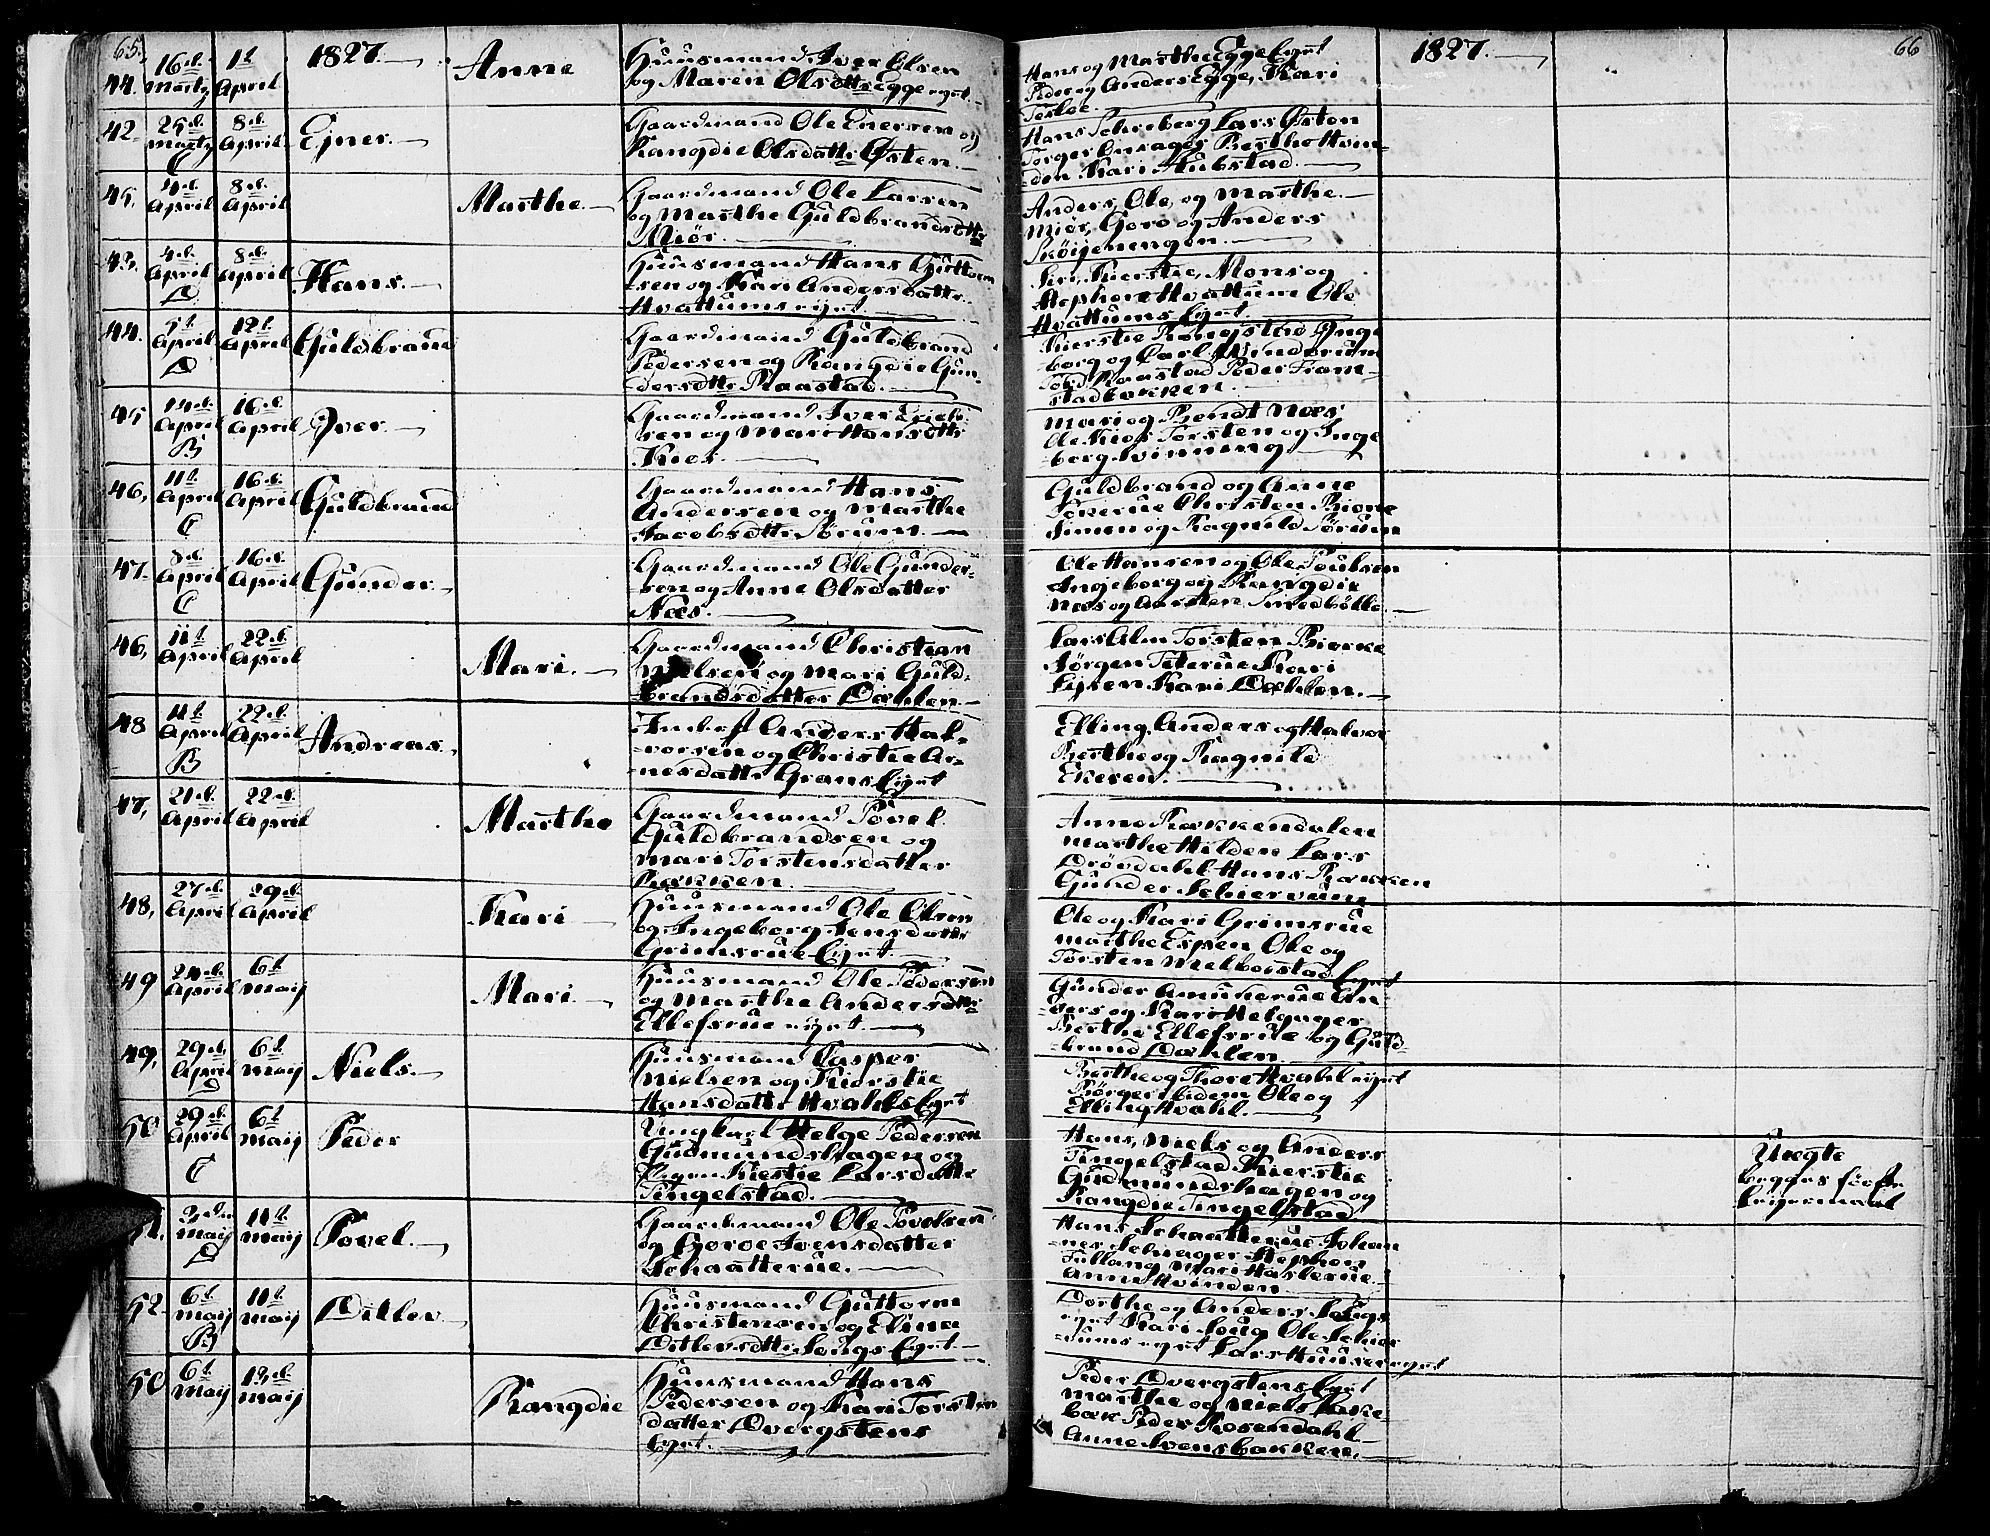 65.
1827.
44. 16d. Martz 1t April Anne Huusmand Iver Olsen
og Maren Olsdtr Egge eyet.
42. 25d. Martz 8d. April Ejner. Gaardmand Ole Enersen og
C Rangdie Olsdattr Østen.
45. 4d. April 8d. April Marthe. Gaardmand Ole Larsen
og Marthe Guldbrandsdttr
Miør.
43. 4d. April 8d. April Hans. Huusmand Hans Guttorm
D sen og Kari Andersdatter
Hvattums eyet.
44. 5t April 12t April Guldbrand Gaardmand Guldbrand
D Pedersen og Rangdie Gun-
dersdttr Raastad.
45 14d. April 16d. April Iver. Gaardmand Iver
B sen og Mari Hansdttr
Kios.
46, 11t April 16d. April Guldbrand Gaardmand Hans
C Andersen og Marthe
Jacobsdttr Sørum
47. 8d. April 16d. April Gunder. Gaardmand Ole Gunder-
C sen og Anne Olsdatter
Næs.
46, 11t April 22d. April Mari. Gaardmand Christian
Nielsen og Mari Guld-
brandsdatter Dæhlen
48 11t April 22d. April Andreas. Anders Hal-
B vorsen og Christie Ar-
nesdattr Grans Eyet
47, 21d. April 22d. April Marthe Gaardmand Povel
Guldbrandsen og
Mari Torstensdatter
Rækken
48, 27d. April 29d. April Kari Huusmand Ole Olsen
og Ingeborg Jensdatter
Grimsrue Eyet.
49 24d. April 6t Maij Mari. Huusmand Ole Pedersen
og Marthe Andersdttr
Ellefsrue eyet.
49, 29d. April 6t Maij Niels. Huusmand Casper
D Nielsen og Kierstie
Hansdattr Hvahls Eyet
50 29d. April 6t Maij Peder Ungkarl Helge Pedersen
C Gudmundshagen og
Pigen Kiestie Larsdattr
Tingelstad.
51. 3die Maij 11t Maij Povel. Gaardmand Ole Povelsen
D og Goroe Ivensdatter
Schaatterue.
52 6t Maij 11t Maij Ditlev Huusmand Guttorm
B Christensen og Eline
Ditlevsdttr Sougs Eyet.
50 6t Maij 13d. Maij Rangdie Huusmand Hans
Pedersen og Kari Torsten
datter Dvergstens
Eyet.
66
1827.
Hans og Marthe Egge Eyet
Peder og Anders Egge, Kari
Tesloe.
Hans Schreberg Lars Østen
Torger Onsager Berthe Hvin-
den Kari Hubstad
Anders, Ole, og Marthe
Miør, Goro og Anders
Skøijenengen.
Siri, Kierstie, Mons og
Stephen Hvattum Ole
Hvattums Eyet.
Kierstie Inge
borg og Carl Windorum
Raastad Peder Fram-
stadbakken.
Mari og Bendt Næs
Ole Kios Torsten og Inge
berg Svinning
Guldbrand og Anne
Christen Biøne
Simen og Ragnild Sørum
Ole Hansen og Ole Poulsen
Ingeborg og Rangdie
Næs og Carsten Smedbølle.
Lars Alm Torsten Biercke
Jørgen Teterue Kari
Kari Dæhlen.
Elling, Anders og Halvor
Berthe og Ragnild
Ekeren.
Anne Rækkendalen
Marthe Hilden Lars
Drøvdahl Hans Rækken
Gunder Schiervum
Ole og Kari Grimsrue
Marthe Espen Ole og
Torsten Melbostad Eyet
Gunder Amunerue An-
ders og Kari Helgager
Berthe Ellefsrue og Guld-
brand Dæhlen
Berthe og Thore Hvahl eyet
Børger ibidem Ole og
Elling Hvahl.
Hans, Niels og Anders
Tingelstad Kierstie
Gudmundshagen og
Rangdie Tingelstad
Uægte
begges første
leyermaal
Hans Schaatterue Johan
nes Schiager Stephen
Tullang Mari Haslerue
Anne Hvinden
Dorthe og Anders Sougs
eyet Kari Soug Ole Schier
vums eyet Lars Huuser eyet
Peder Dvergstens Eyet
Marthe og Niels
bæk Peder Rosendahl
Anne Ivensbakken.